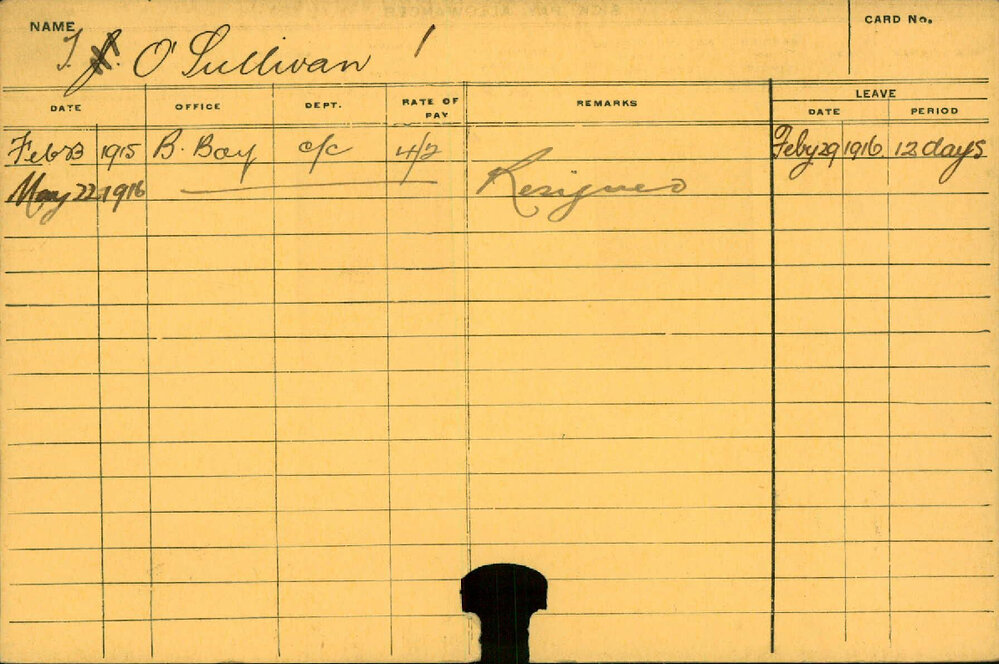 NAME
CARD No.
T. J. O'Sullivan /
DATE OFFICE DEPT. RATE OF PAY REMARKS LEAVE
DATE PERIOD
Feb 23 1915 B. Boy c/c 4/2 Feby 29 1916 12 days
May 22 1916 Resigned